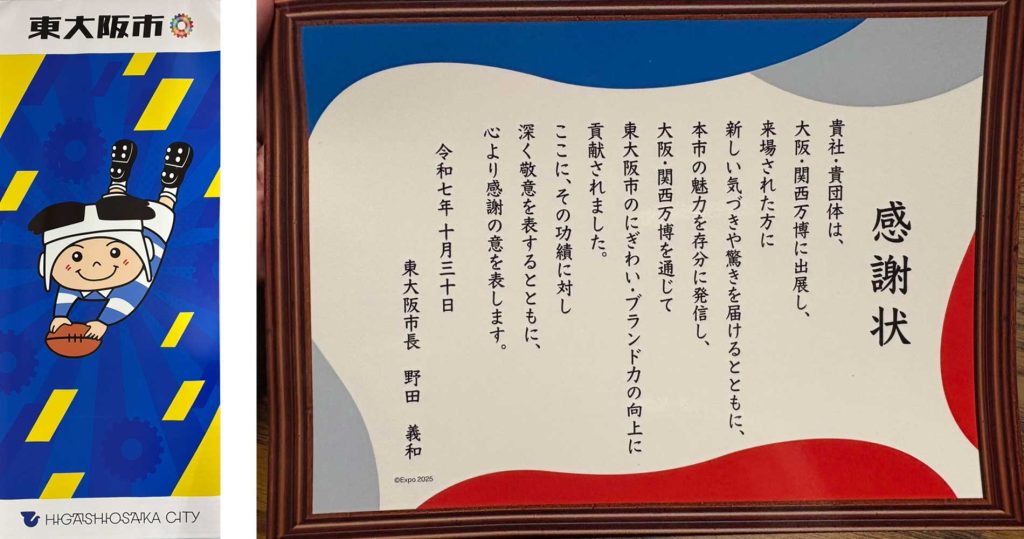 東大阪市
HIGASHIOSAKA CITY
感謝状
貴社・貴団体は、
大阪・関西万博に出展し、
来場された方に
新しい気づきや驚きを届けるとともに、
本市の魅力を存分に発信し、
大阪・関西万博を通じて
東大阪市のにぎわい・ブランド力の向上に
貢献されました。
ここに、その功績に対し
深く敬意を表するとともに、
心より感謝の意を表します。
令和七年十月三十日
東大阪市長 野田 義和
©Expo 2025